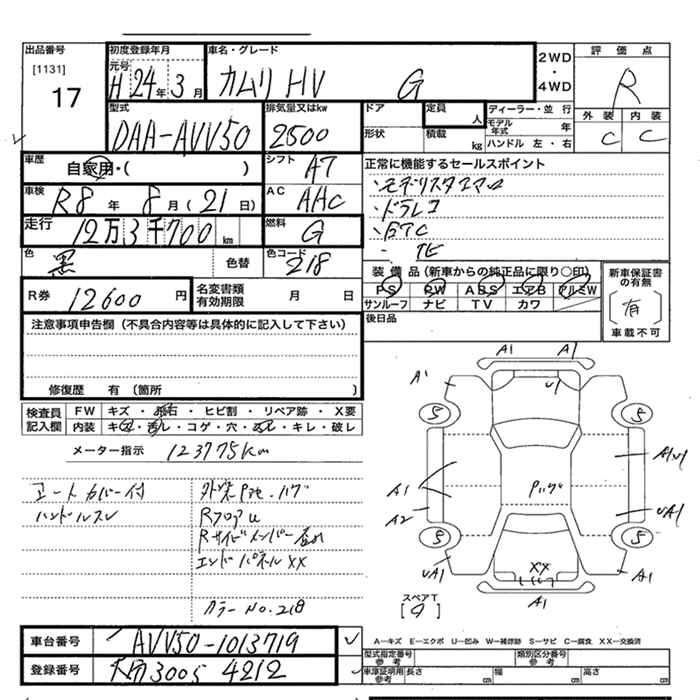 出品番号
[1131]
17
初度登録年月
元号
H 24年 3月
車名・グレード
カムリ HV G
2WD
・
4WD
評価点
R
外装 内装
C C
型式
DAA-AVV50
排気量又はkw
2500
ドア
形状
定員
人
積載
kg
ディーラー・並行
モデル年式 年
ハンドル 左・右
車歴
自家用・( )
シフト
A7
正常に機能するセールスポイント
・モデリスタエアロ
・ドラレコ
・ETC
・TE
車検
R8年 8月(21日)
AC
AAC
走行
12万3千700km
燃料
G
色
黒
色替
色コード
218
装備品(新車からの純正品に限り○印)
PS PW ABS エアB アルミW
サンルーフ ナビ TV カワ
新車保証書の有無
(有)
車載不可
R券 12600円
名変書類
有効期限 月 日
後日品
注意事項申告欄(不具合内容等は具体的に記入して下さい)
修復歴 有(箇所 )
検査員記入欄
FW キズ・飛石・ヒビ割・リペア跡・X要
内装 キズ・汚レ・コゲ・穴・スレ・キレ・破レ
メーター指示 123775km
シートカバー付
ハンドルスレ
Rフロアu
エンドパネルXX
カラーNo.218
A1 A1
A1
U1
S S
A1
A2
AU1
UA1
S S
UA1
XX
A1
A1
スペアT
車台番号 AVV50-1013719
登録番号 大分 300 5 4212
A―キズ E―エクボ U―凹み W―補修跡 S―サビ C―腐食 XX―交換済
型式指定番号 参考
類別区分番号 参考
車庫証明用 参考 長さ cm 幅 cm 高さ cm